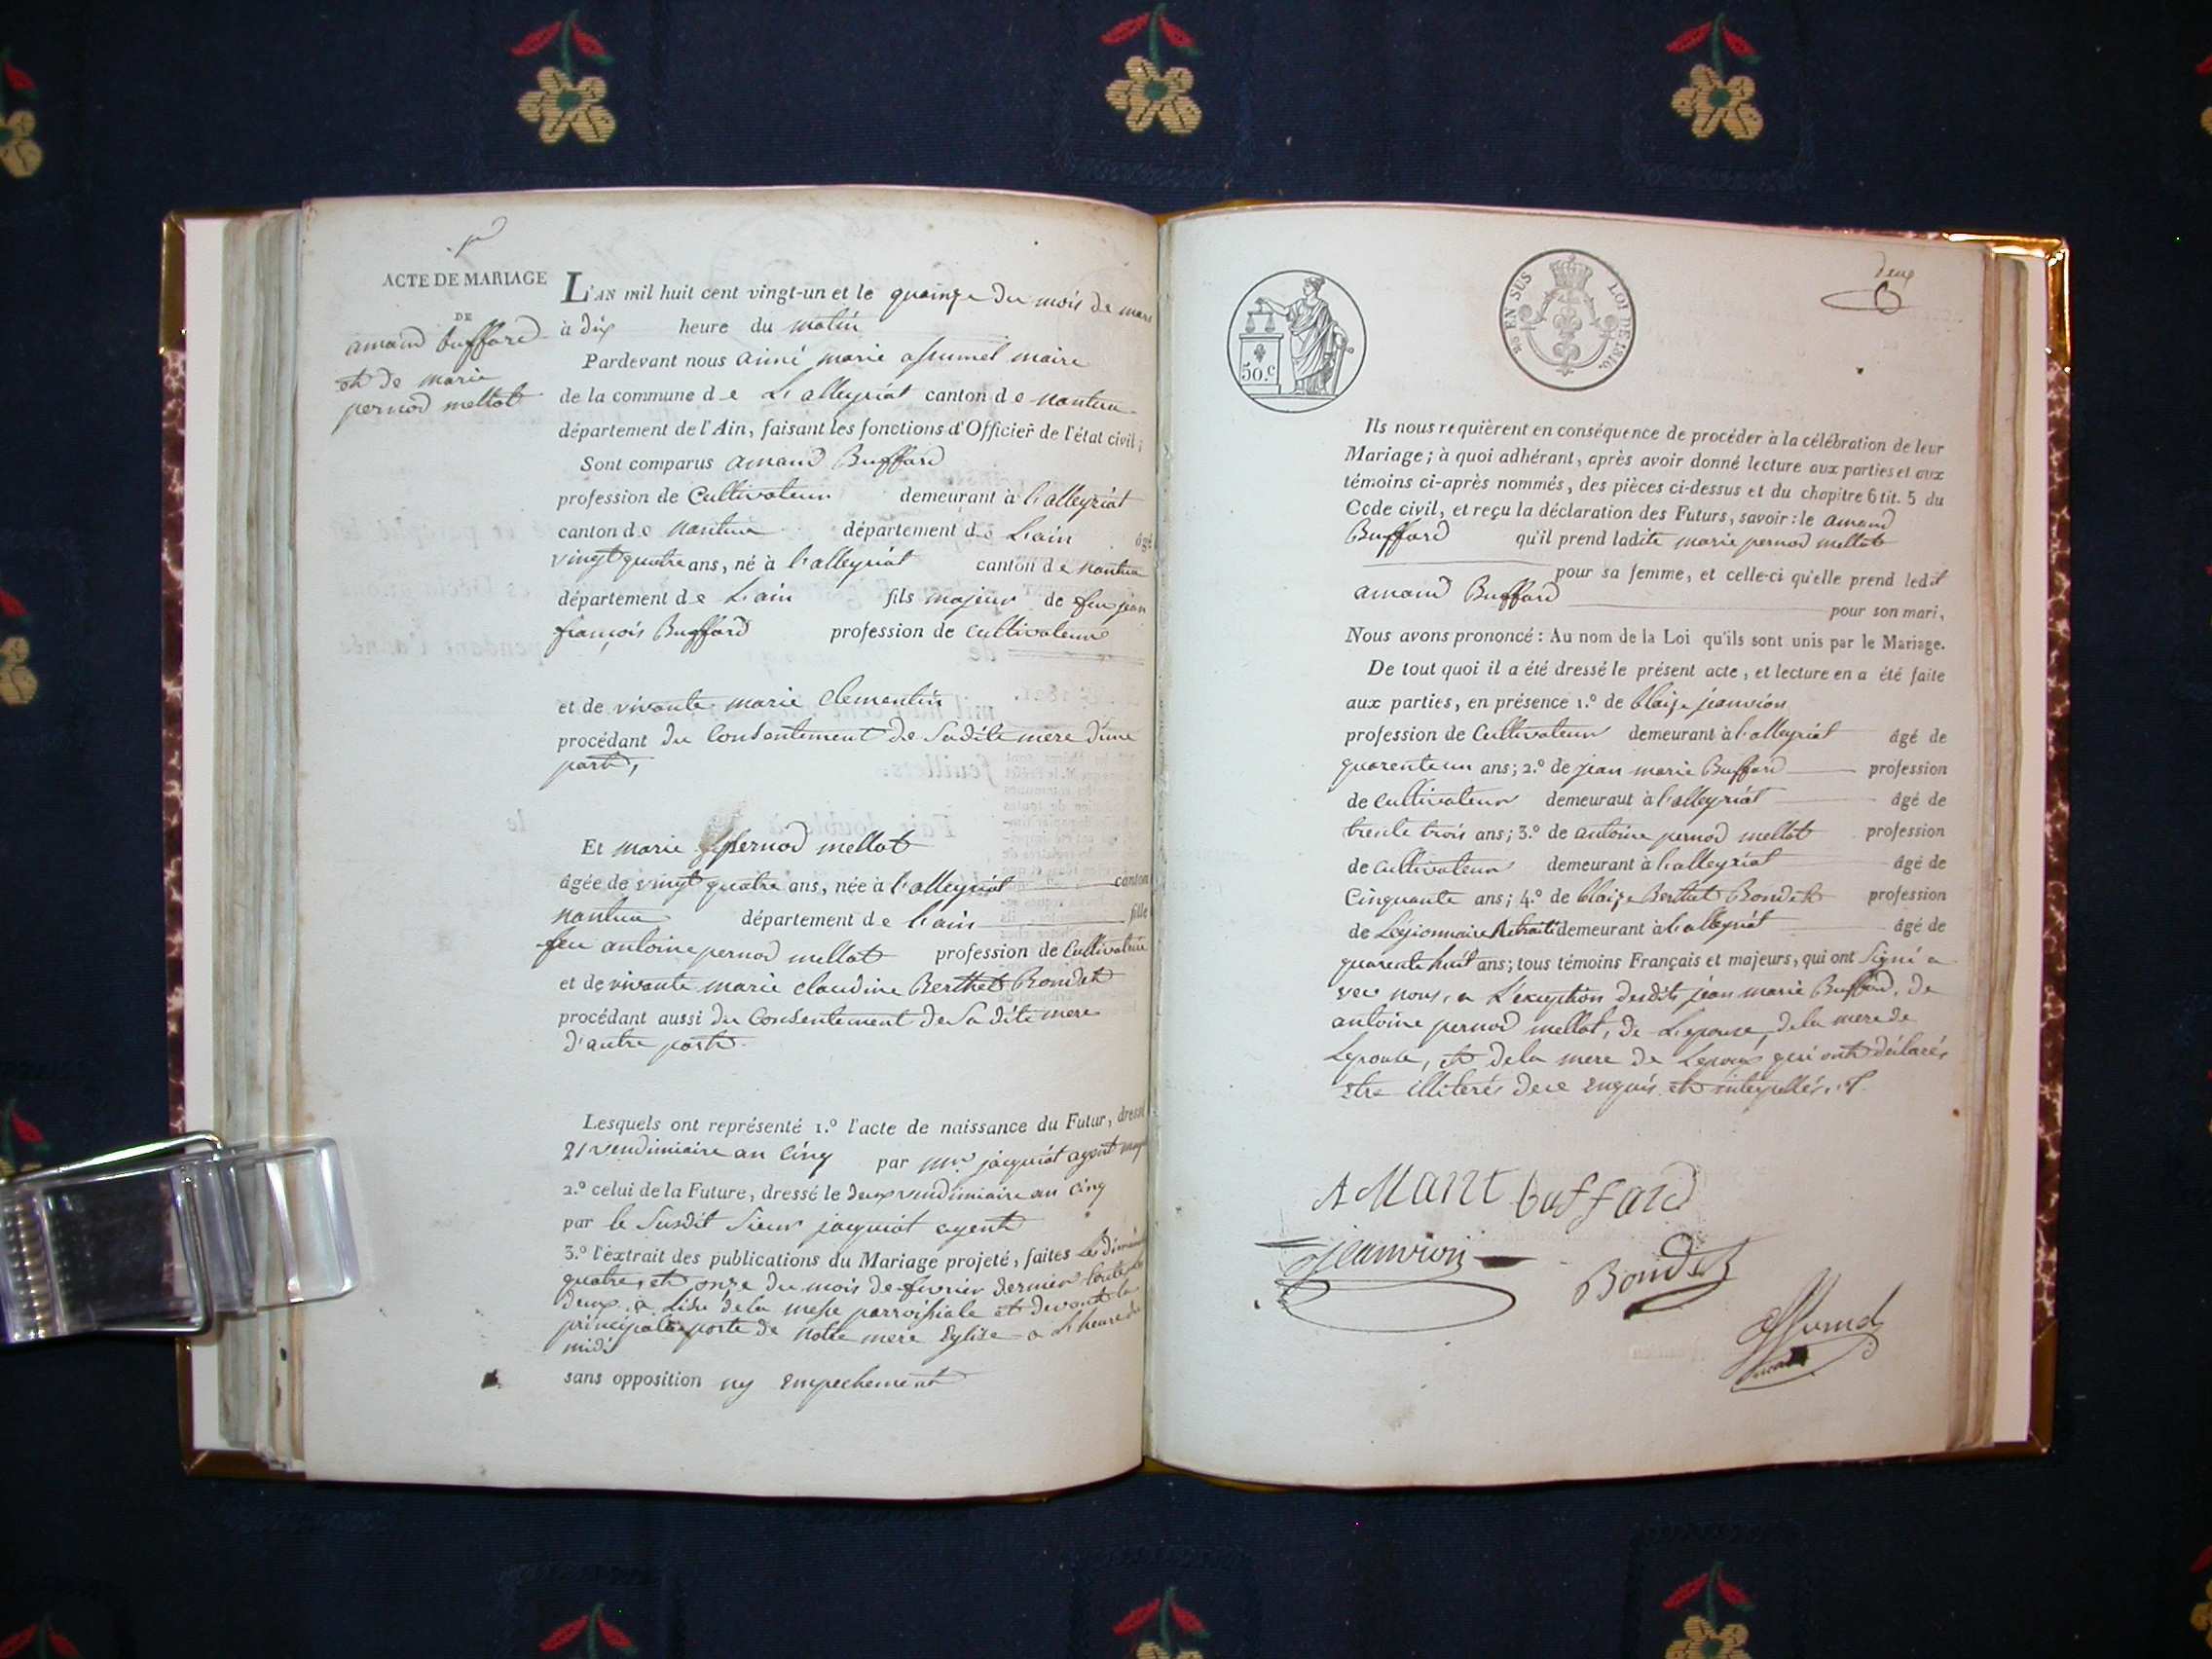 ACTE DE MARIAGE
DE
amand buffard
et de marie
pernod mellot
L'AN mil huit cent vingt-un et le quainze du mois de mars
à dix heure du matin
Pardevant nous aimé marie assumel maire
de la commune de L'alleyriat canton de nantua
département de l'Ain, faisant les fonctions d'Officier de l'état civil;
Sont comparus amand Buffard
profession de Cultivateur demeurant à l'alleyriat
canton de nantua département de L'ain âgé
vingt quatre ans, né à l'alleyriat canton de nantua
département de L'ain fils majeur de feu jean
françois Buffard profession de cultivateur
et de vivante marie clementin
procédant du Consentement de Sadite mere d'une
part,
Et marie pernod mellot
âgée de vingt quatre ans, née à l'alleyriat canton
nantua département de l'ain fille
feu antoine pernod mellot profession de Cultivateur
et de vivante marie claudine Berthet Bondet
procédant aussi du Consentement de Sa dite mere
d'autre part.
Lesquels ont représenté 1.º l'acte de naissance du Futur, dressé
21 vendimiaire an cinq par mr. jacquiot agent
2.º celui de la Future, dressé le deux vendimiaire an cinq
par le Susdit Sieur jacquiot agent
3.º l'extrait des publications du Mariage projeté, faites les
quatre, et onze du mois de fevrier dernier
deux, a Lisu de la messe parroissiale et devant la
principale porte de notre mere Eglise a L'heure de
midi
sans opposition ny Empechement
50.c
EN SUS LOI DE 1816.
deux
Ils nous requièrent en conséquence de procéder à la célébration de leur
Mariage; à quoi adhérant, après avoir donné lecture aux parties et aux
témoins ci-après nommés, des pièces ci-dessus et du chapitre 6 tit. 5 du
Code civil, et reçu la déclaration des Futurs, savoir: le amand
Buffard qu'il prend ladite marie pernod mellot
pour sa femme, et celle-ci qu'elle prend ledit
amand Buffard pour son mari,
Nous avons prononcé: Au nom de la Loi qu'ils sont unis par le Mariage.
De tout quoi il a été dressé le présent acte, et lecture en a été faite
aux parties, en présence 1.º de blaize jeanvion
profession de Cultivateur demeurant à l'alleyriat âgé de
quarente un ans; 2.º de jean marie Buffard profession
de cultivateur demeuraut à l'alleyriat âgé de
trente trois ans; 3.º de antoine pernod mellot profession
de cultivateur demeurant à l'alleyriat âgé de
Cinquante ans; 4.º de blaize Berthet Bondet profession
de Légionnaire Retraité demeurant à l'alleyriat âgé de
quarente huit ans; tous témoins Français et majeurs, qui ont Signé a
vec nous, a L'exception desdits jean marie Buffard, de
antoine pernod mellot, de L'epouse, de la mere de
Lepouse, et de la mere de Lepoux qui ont déclarés
etre illiterés de ce enquis et interpellés.
AMant buffard
jeanvion
Bondet
assumel